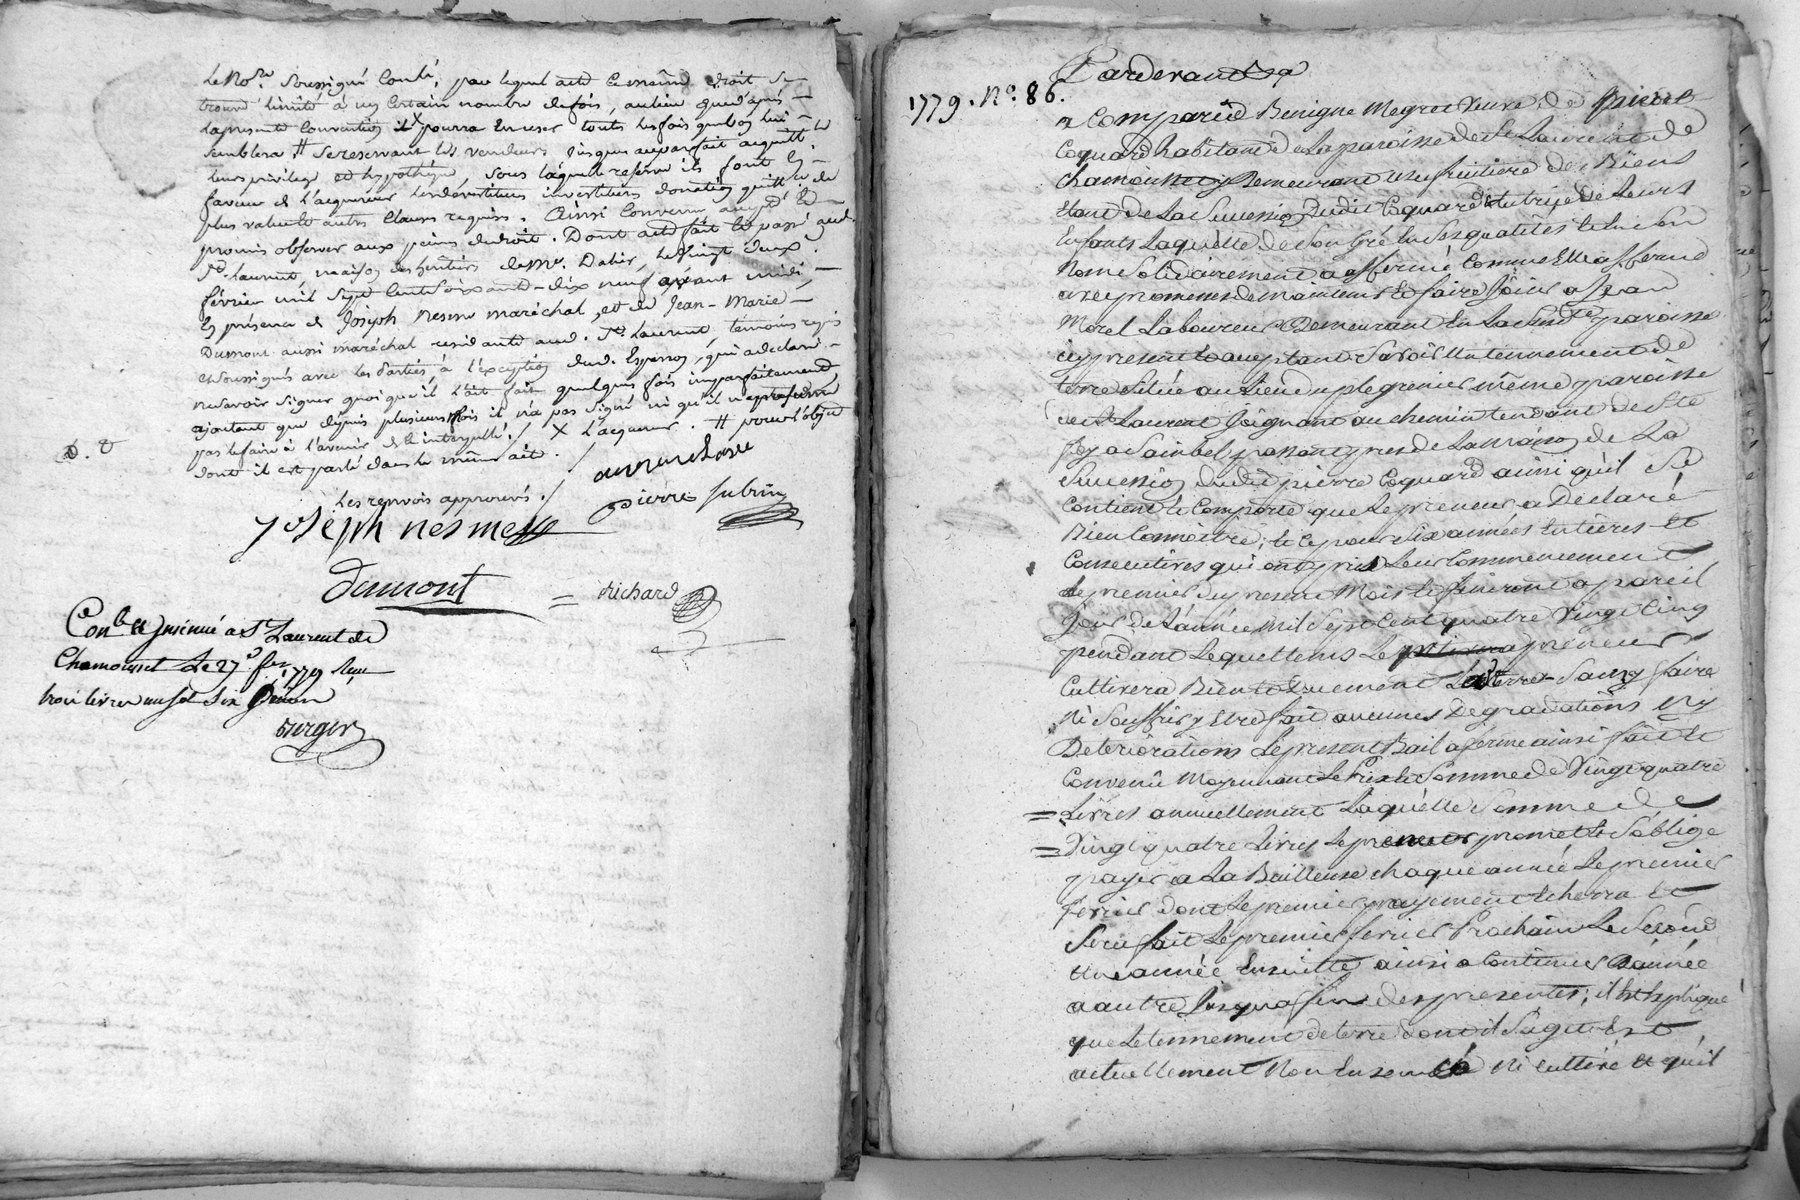 Le No.re Soussigné Conti, par lequel acte ce même droit se
trouve limité à un certain nombre de fois, au lieu que d'après
la presente Convention il X pourra en user toutes les fois que bon lui
semblera # se reservant les vendeurs jusqu'au parfait acquitt.t
leurs privilege et hypothéque, sous laquelle reserve ils font en
faveur de l'acquereur les devestitures investitures donation quitt.ce de
plus value et autres clauses requises. Ainsi Convenu accepté et
promis observer aux peines de droit. Dont acte fait et passé aud.
St. Laurent, maison des heritiers de Me. Dalier, le vingt deux
fevrier mil sept cent soixante-dix neuf avant midi,
En présence de Joseph Nesme maréchal, et de Jean-Marie
Dumont aussi maréchal residants aud. St. Laurent témoins requis
et soussignés avec les Parties à l'exception dud. qui a declaré
ne savoir signer quoi qu'il l'ait fait quelques fois imparfaitement,
ajoutant que depuis plusieurs mois il n'a pas signé ni qu'il
pas le faire à l'avenir de ce interpellé. / X L'acquereur. # pour l'objet
dont il est parlé dans le même acte. /
Les renvois approuvés. /
pierre Subrin
joseph nesme
Dumont = Richard
Con.lé et Insinué a St Laurent de
Chamousset Le 27.e fev. 1779 Reçu
trois livres un sol six deniers
Burger
1779. No. 86.
Pardevant
a Comparüe Benigne Megret Veuve de pierre
Coquard habitante de La paroisse de St Laurent de
Chamousset y Demeurant usufruitiere des Biens
Etant de La Succession dudit Coquard et tutrice de Leurs
Enfants Laquelle de Son Gré en Ses qualités et en Son
Nom Solidairement a affermé Comme Elle afferme
avec promesse de maintenir Et faire Joüir a Jean
Morel Laboureur Demeurant En La Susd.te paroisse
icy present et acceptant Savoir Un tennement de
terre située au Lieu du plegrenier même paroisse
de St Laurent Joignant au chemin tendant de Ste
foy a Sainbel passant pres de La maison de La
Succession dudit pierre Coquard ainsi qu'il Se
Contient et Comporte que Le preneur a Declaré
Bien Connoitre, et ce pour Six années Entieres Et
Consecutives qui ont pris Leur Commencement
Le premier du present Mois et finiront a pareil
Jour de L'année Mil Sept Cent quatre Vingt Cinq
pendant Lequel tems Le preneur
Cultivera Bien et duement La terre Sans y faire
Ni Souffrir y Etre fait aucunes Degradations Ny
Deteriorations Le present Bail a ferme ainsi fait et
Convenu Moyennant Le Prix et Somme de Vingt quatre
= Livres annuellement Laquelle Somme de
= Vingt quatre Livres Le preneur promet et S'oblige
payer a La Bailleuse chaque année Le premier
fevrier dont Le premier payement Echerra Et
Sera fait Le premier fevrier Prochain Le Second
Une année Ensuitte ainsi a Continuer D'année
a autre Jusqu'a fin des presentes; il Est Expliqué
que Le tennement de terre dont il S'agit Est
actuellement Non Ensemencé Ni Cultivé et qu'il